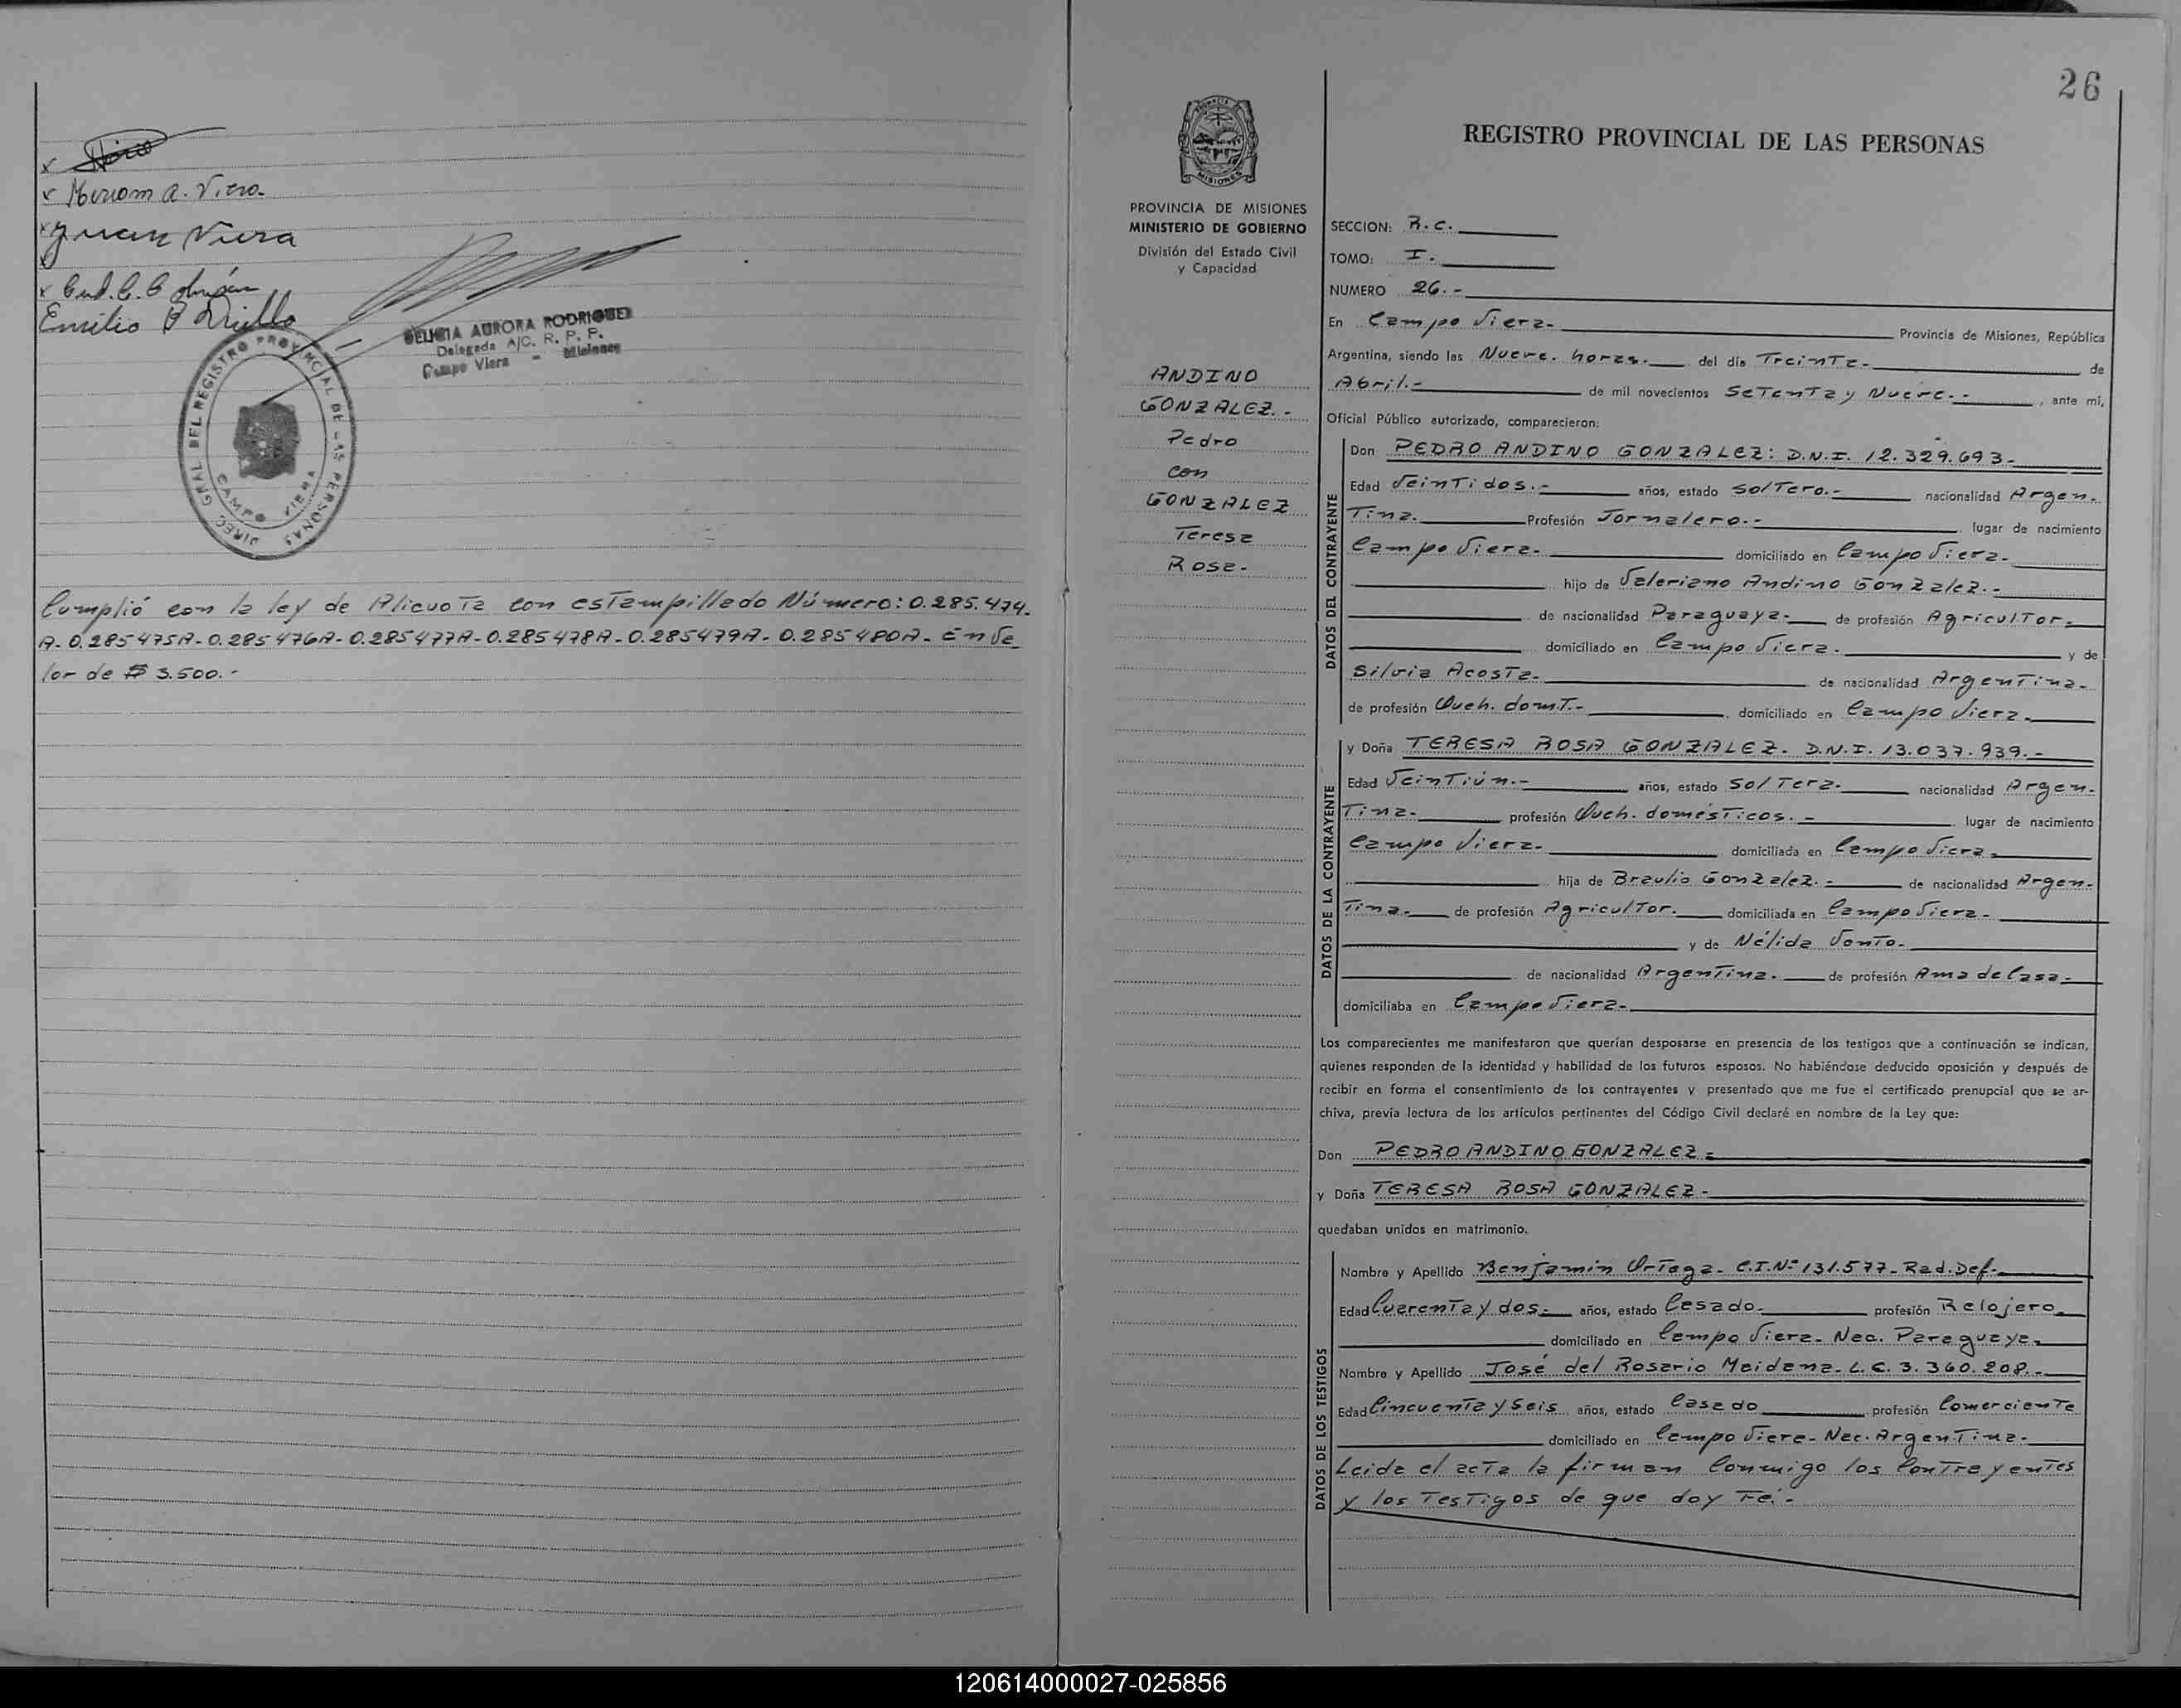 Miriam A. Viera
Juan Viera
Emilio
DELICIA AURORA RODRIGUEZ
Delegada A/C. R. P. P.
Campo Viera - Misiones
DIREC. GRAL. DEL REGISTRO PROVINCIAL DE LAS PERSONAS
CAMPO VIERA
Cumplió con la ley de Alicuota con estampillado Número: 0.285.474.
A-0.285475A-0.285476A-0.285477A-0.285478A-0.285479A-0.285480A- En Va
lor de $ 3.500.-
26
REGISTRO PROVINCIAL DE LAS PERSONAS
PROVINCIA DE MISIONES
MINISTERIO DE GOBIERNO
División del Estado Civil
y Capacidad
ANDINO
GONZALEZ.-
Pedro
con
GONZALEZ
Teresa
Rosa-
SECCION: R.C.
TOMO: I.
NUMERO 26.-
En Campo Viera- Provincia de Misiones, República
Argentina, siendo las Nueve. horas.- del día Treinta- de
Abril.- de mil novecientos Setenta y Nueve.-, ante mí,
Oficial Público autorizado, comparecieron:
DATOS DEL CONTRAYENTE
Don PEDRO ANDINO GONZALEZ: D.N.I. 12.329.693-
Edad Veintidos.- años, estado Soltero.- nacionalidad Argen-
tina. Profesión Jornalero.- lugar de nacimiento
Campo Viera- domiciliado en Campo Viera-
hijo de Valeriano Andino Gonzalez.-
de nacionalidad Paraguaya- de profesión Agricultor-
domiciliado en Campo Viera- y de
Silvia Acosta- de nacionalidad Argentina-
de profesión Queh. domt.- domiciliado en Campo Viera-
DATOS DE LA CONTRAYENTE
y Doña TERESA ROSA GONZALEZ- D.N.I. 13.037.939.-
Edad Veintiún.- años, estado Soltera- nacionalidad Argen-
tina- profesión Queh. domésticos.- lugar de nacimiento
Campo Viera- domiciliada en Campo Viera-
hija de Braulio Gonzalez.- de nacionalidad Argen-
tina- de profesión Agricultor. domiciliada en Campo Viera-
y de Nélida Vonto-
de nacionalidad Argentina- de profesión Ama de Casa-
domiciliaba en Campo Viera-
Los comparecientes me manifestaron que querían desposarse en presencia de los testigos que a continuación se indican,
quienes responden de la identidad y habilidad de los futuros esposos. No habiéndose deducido oposición y después de
recibir en forma el consentimiento de los contrayentes y presentado que me fue el certificado prenupcial que se ar-
chiva, previa lectura de los artículos pertinentes del Código Civil declaré en nombre de la Ley que:
Don PEDRO ANDINO GONZALEZ-
y Doña TERESA ROSA GONZALEZ-
quedaban unidos en matrimonio.
DATOS DE LOS TESTIGOS
Nombre y Apellido Benjamin Ortega- C.I.Nº 131.577-Rad.Def.-
Edad Cuarenta y dos- años, estado Casado- profesión Relojero-
domiciliado en Campo Viera- Nac. Paraguaya-
Nombre y Apellido José del Rosario Maidana- L.E. 3.360.208.-
Edad Cincuenta y Seis años, estado Casado profesión Comerciante
domiciliado en Campo Viera- Nac. Argentina-
Leida el acta la firman Conmigo los Contrayentes
y los Testigos de que doy Fé.-
120614000027-025856